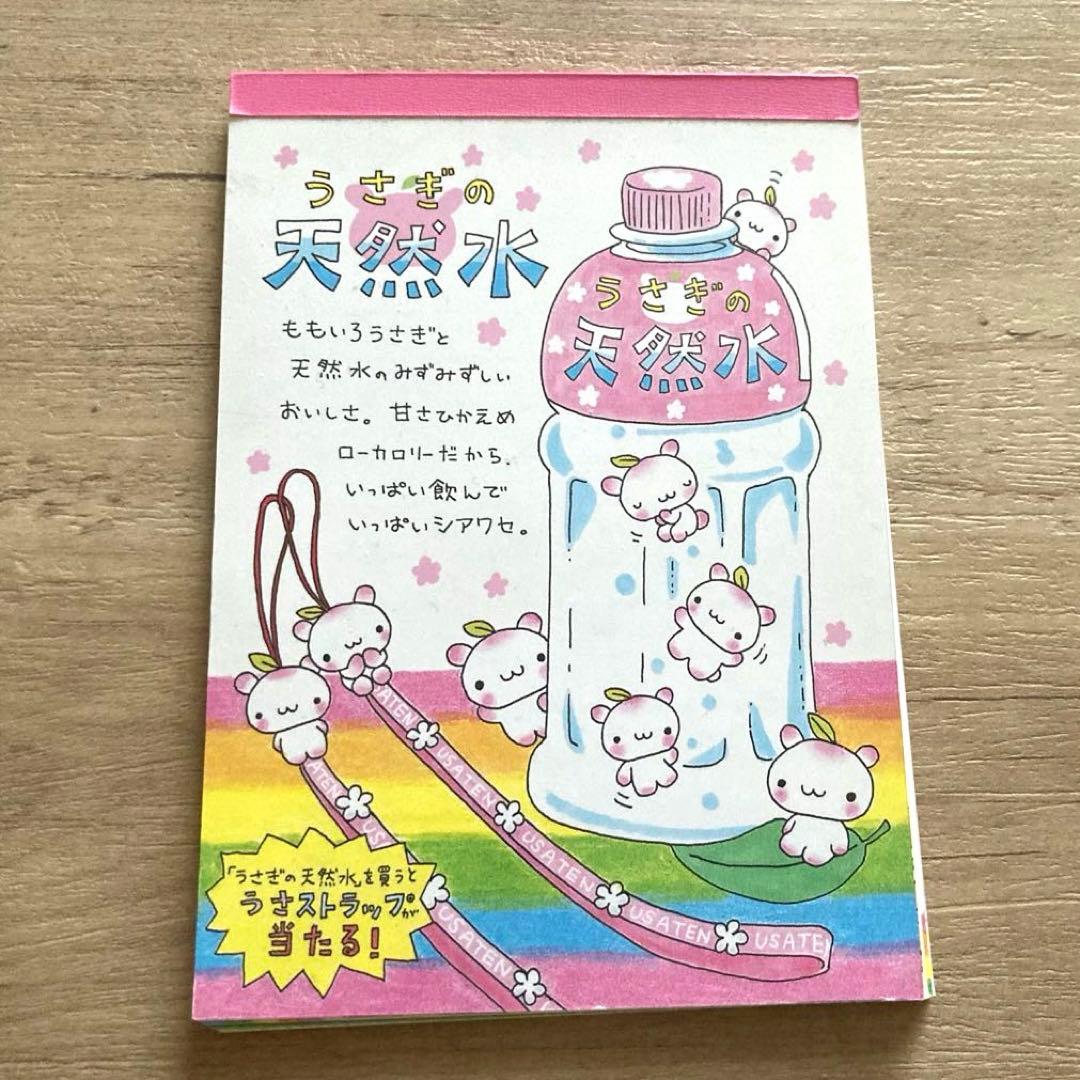 うさぎの
天然水
ももいろうさぎと
天然水のみずみずしい
おいしさ。甘さひかえめ
ローカロリーだから、
いっぱい飲んで
いっぱいシアワセ。
うさぎの
天然水
ATEN USATEN USATEN USATEN USATE
ATEN US
USATEN U
「うさぎの天然水」を買うと
うさストラップが
当たる！